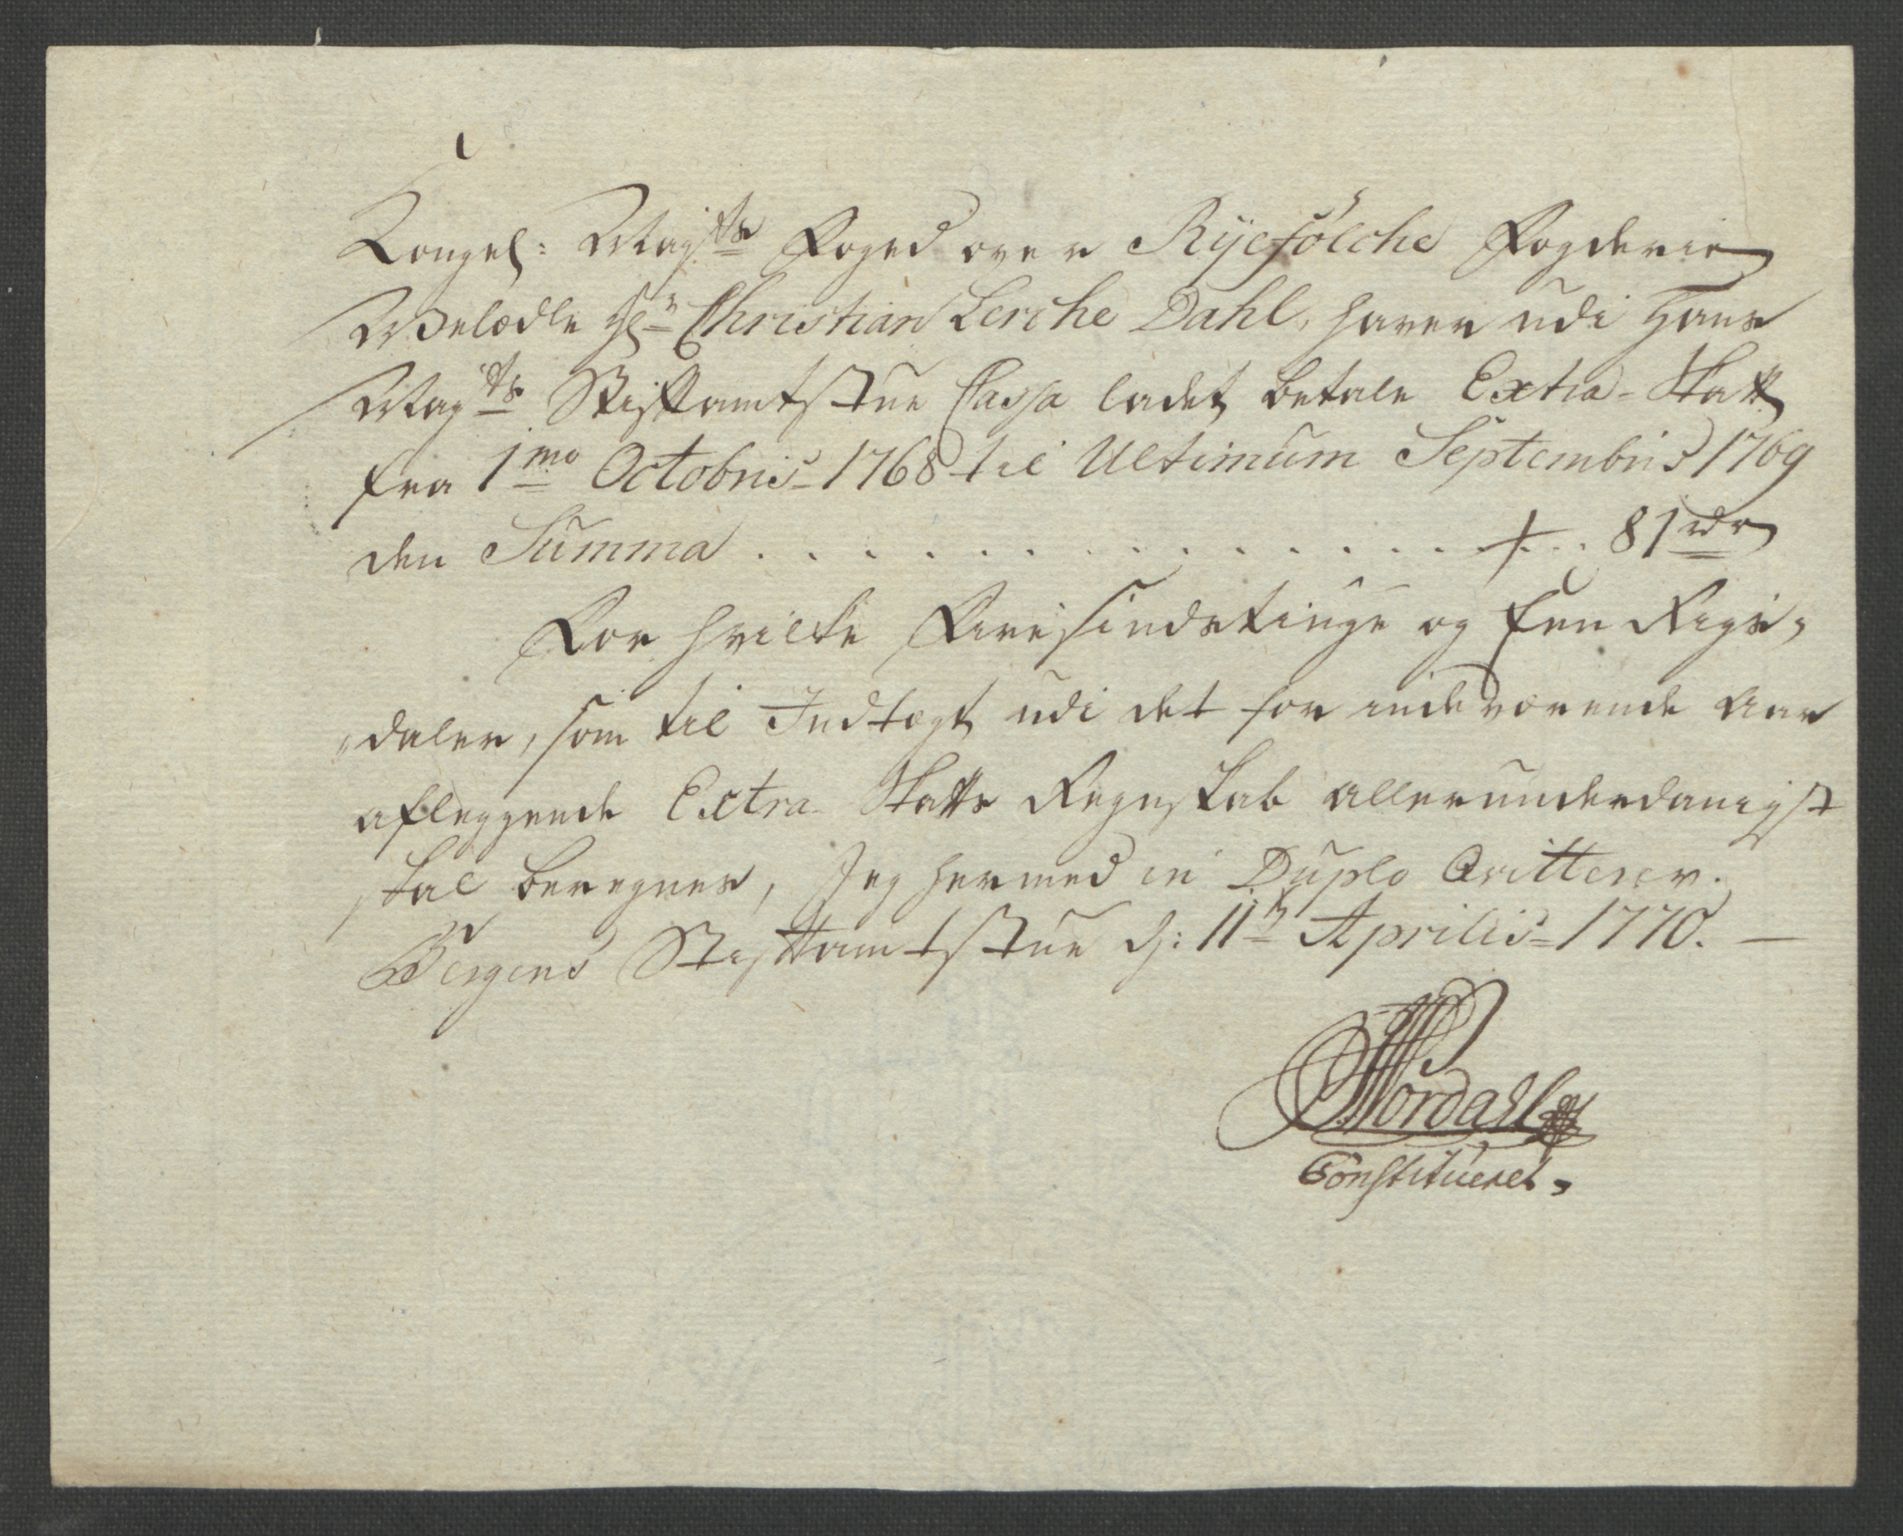 Kongel: May.ts Foged over Ryefölche Fogderie
Welædle Hr Christian Lerche Dahl, haver udi Hans
May.ts Stiftamtstue Cassa ladet betale Extra-Skatt
fra 1mo Octobris 1768 til Ultimum Septembris 1769
den Summa . . . . . . . . . . . . . . . 81 rdr
For hvilke Firesindstiuge og Een Rigs-
daler, som til Indtægt udi det for indeværende Aar
aflæggende Extra Skatts Regnskab allerunderdanigst
skal beregnes, Jeg hermed in Duplo Qvitterer.
Bergens Stiftamtstue d: 11te Aprilis 1770. —
Nordahl
Constitueret.